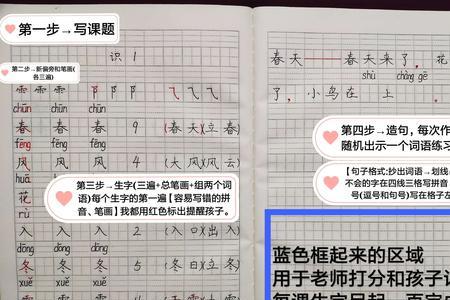 第一步→写课题
识 1
第二步→新偏旁和笔画(
各三遍)
雪 雪 雪 阝 阝 阝 乁 乁 乁
chūn chūn
春 春 春 9 (春天)(立春)
fēng fēng
风 风 风 4 (大风)(风云)
huā
花
第三步→生字(三遍+总笔画+组两个词
语)每个生字的第一遍【容易写错的拼
音、笔画】我都用红色标出提醒孩子。
rù rù
入 入 入 2 (入口)(出入)
dōng dōng
冬 冬 冬 5 (冬日)(立冬)
xuě xuě
春天——春天来了,花
shù chàng gē
了,小鸟在 上
第四步→造句,每次作
随机出示一个词语练习
【句子格式:抄出词语→划线
不会的字在四线三格写拼音
号(逗号和句号)写在格子左
蓝色框起来的区域
用于老师打分和孩子